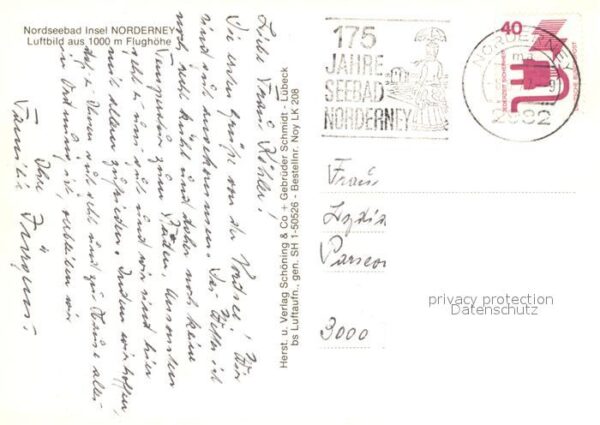 Nordseebad Insel NORDERNEY
Luftbild aus 1000 m Flughöhe
Liebe Frau Köhler!
Die ersten Grüße von der Nordsee! Wir
sind gut angekommen. Das Wetter ist
noch sehr kühl und daher noch keine
Temperatur zum Baden. Ansonsten
geht es uns gut und wir sind hier
mit allem zufrieden. Indem wir hoffen,
daß es Ihnen gut geht und zu Hause alles
in Ordnung ist, verbleiben wir
Ihre
Familie
Herst. u. Verlag Schöning & Co + Gebrüder Schmidt - Lübeck
bs Luftaufn., gen. SH 1-50526 - Bestellnr. Noy LK 208
175
JAHRE
SEEBAD
NORDERNEY
NORDERNEY
2982
40
Frau
Lydia
3000
privacy protection
Datenschutz